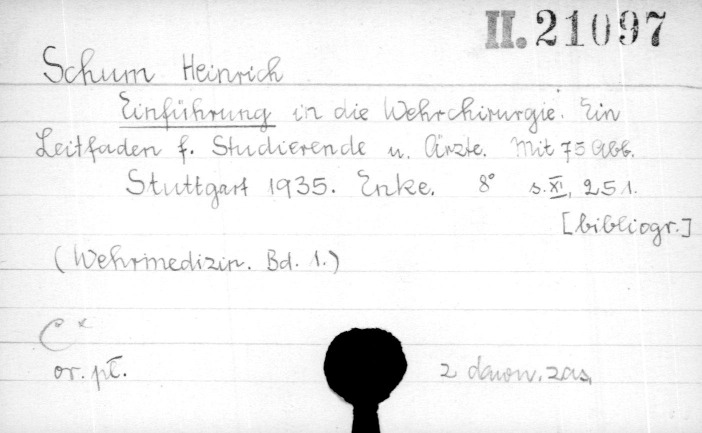 II. 21097
Schum Heinrich
Einführung in die Wehrchirurgie. Ein
Leitfaden f. Studierende u. Ärzte. Mit 75 Abb.
Stuttgart 1935. Enke. 8° s. XI, 251.
[bibliogr.]
(Wehrmedizin. Bd. 1.)
C x
or. pł.
2 dawn. zas.